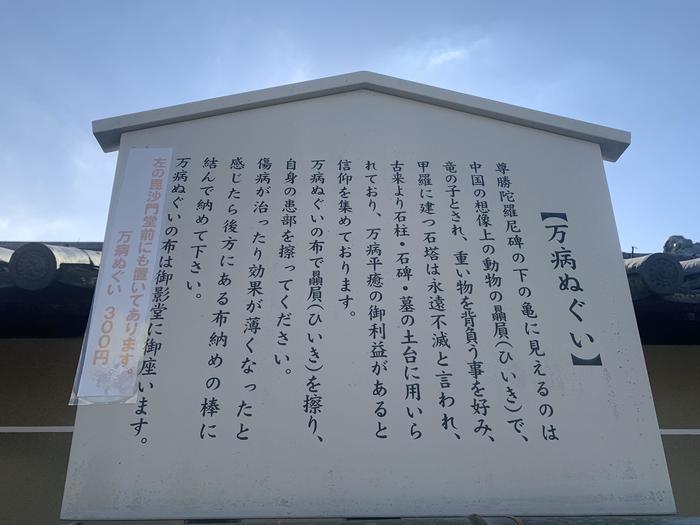 【万病ぬぐい】
尊勝陀羅尼碑の下の亀に見えるのは
中国の想像上の動物の贔屓(ひいき)で、
竜の子とされ、重い物を背負う事を好み、
甲羅に建つ石塔は永遠不滅と言われ、
古来より石柱・石碑・墓の土台に用いら
れており、万病平癒の御利益があると
信仰を集めております。
万病ぬぐいの布で贔屓(ひいき)を擦り、
自身の患部を擦ってください。
傷病が治ったり効果が薄くなったと
感じたら後方にある布納めの棒に
結んで納めて下さい。
万病ぬぐいの布は御影堂に御座います。
左の毘沙門堂前にも置いてあります。
万病ぬぐい 300円